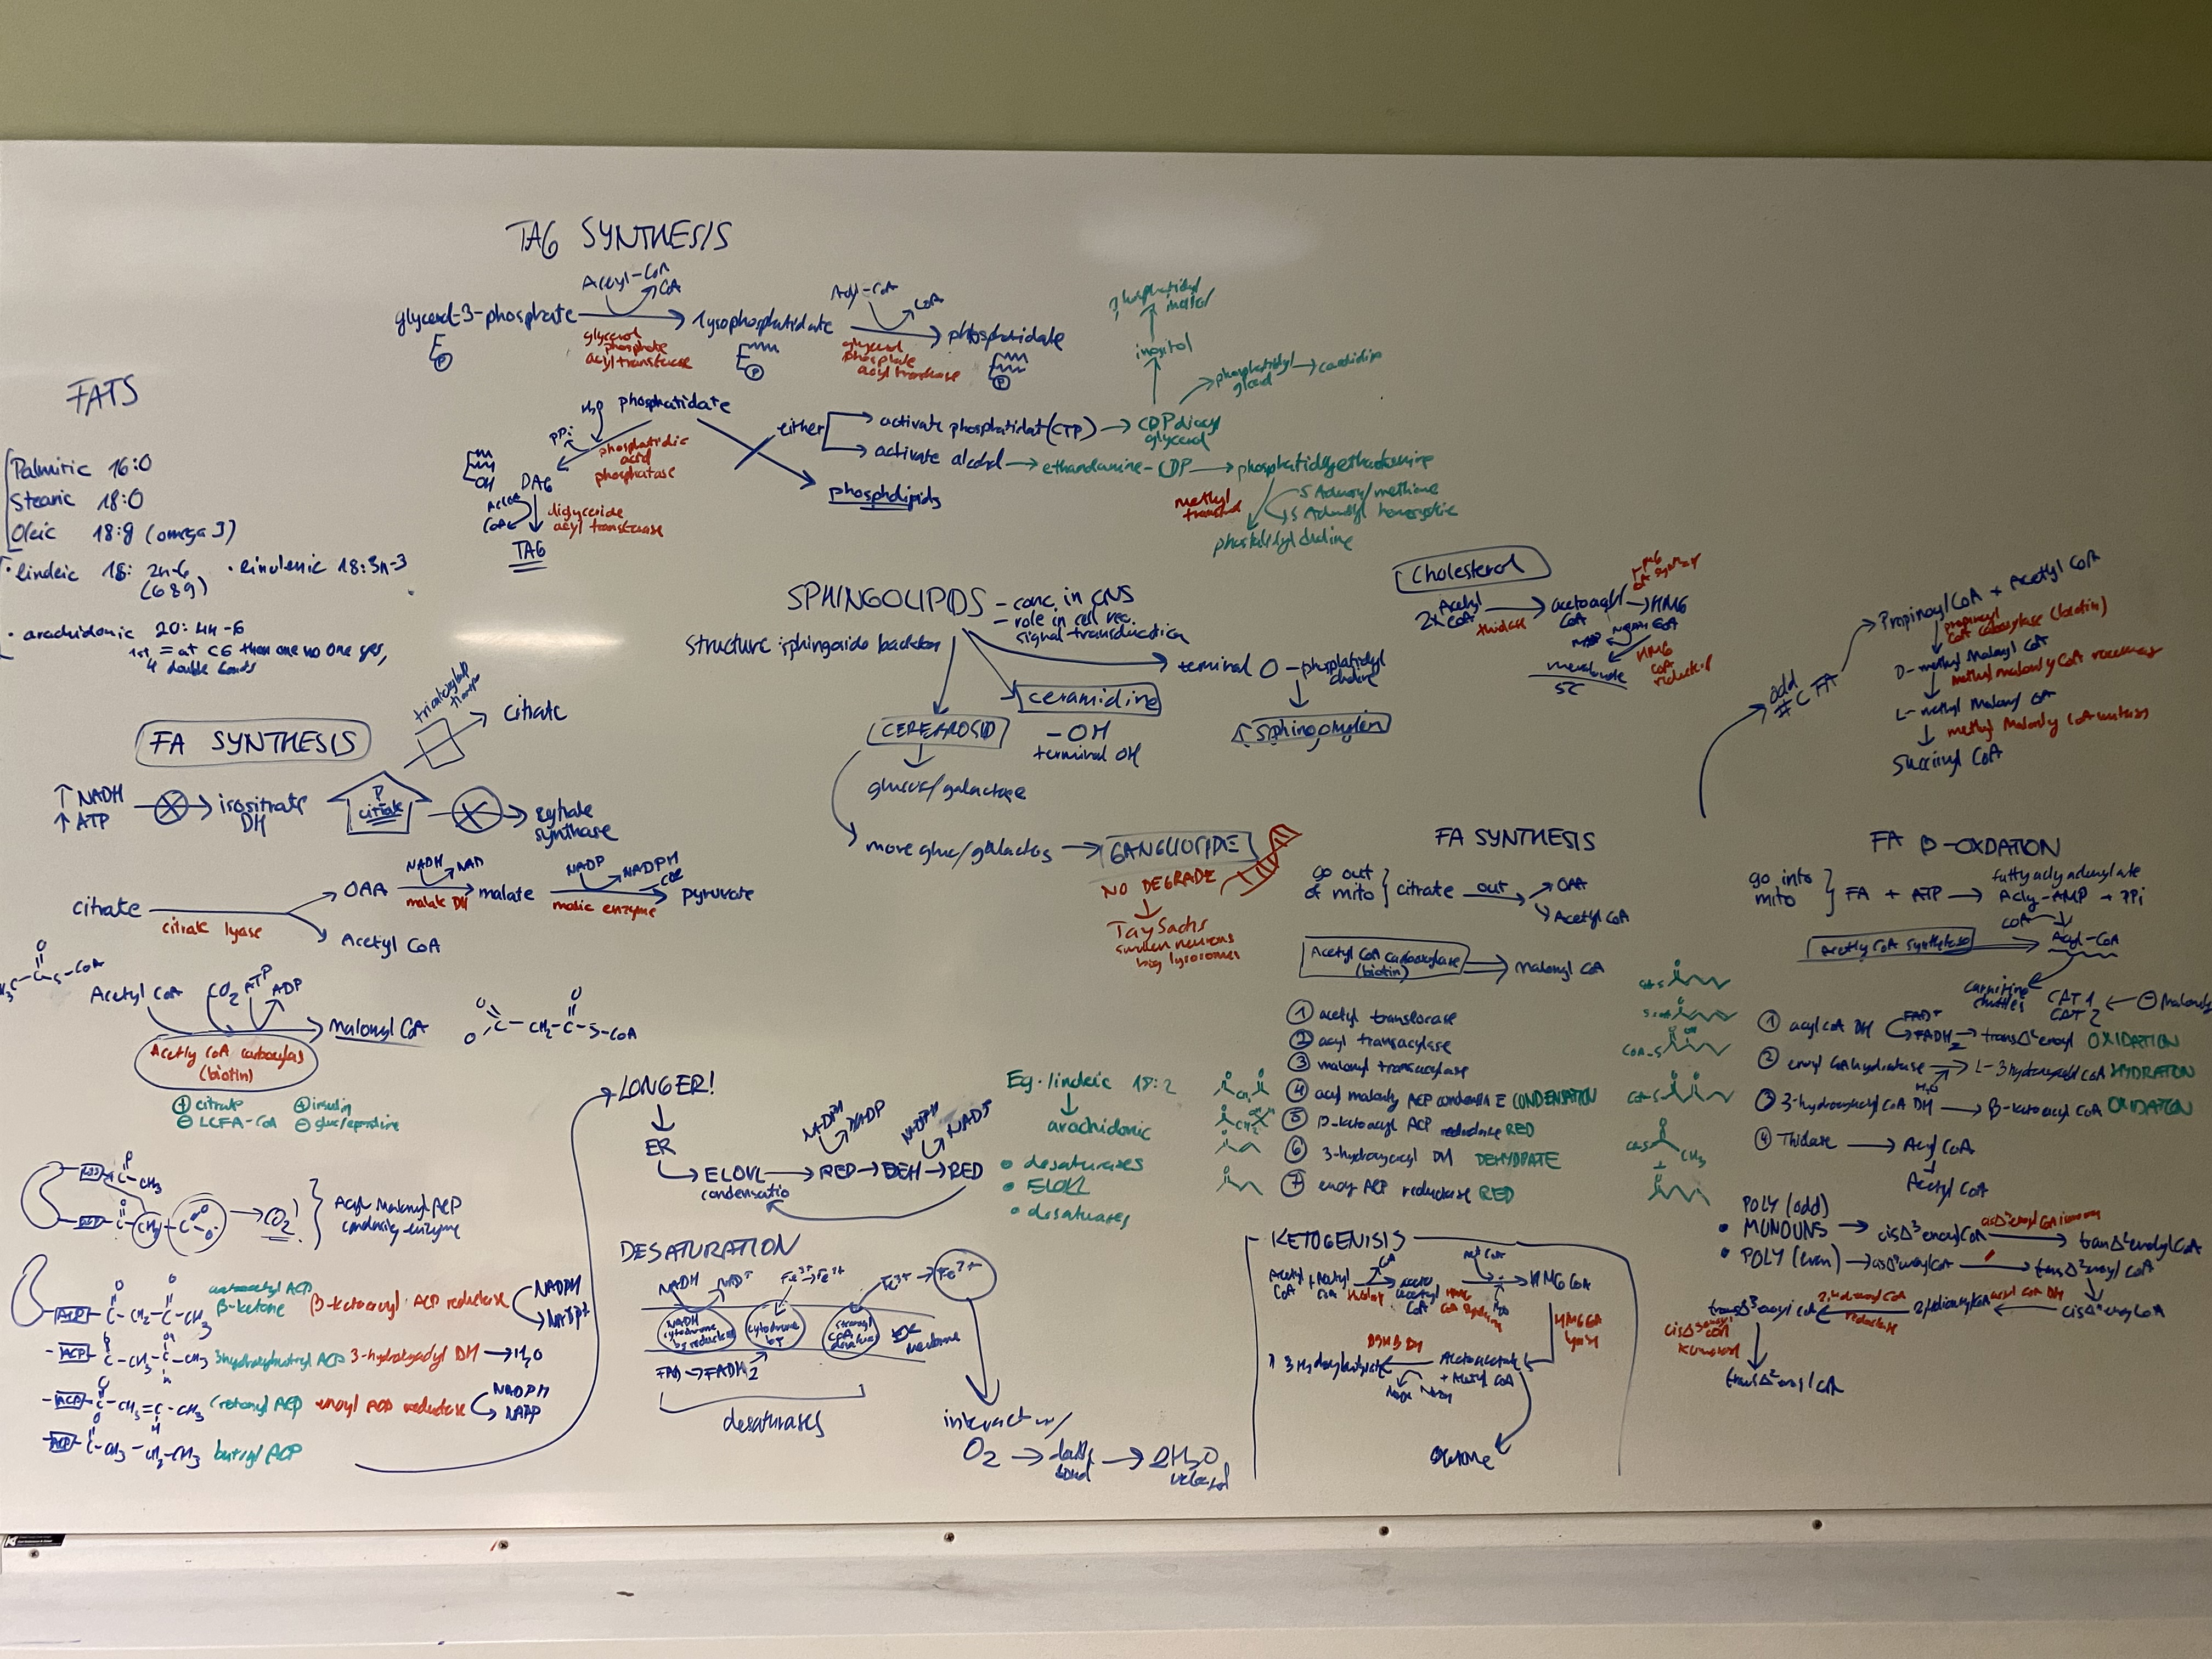 TAG SYNTHESIS
Acyl-CoA
CoA
glycerol-3-phosphate
lysophosphatidate
Acyl-CoA
CoA
phosphatidate
glycerol
phosphate
acyl transferase
glycerol
phosphate
acyl transferase
P
P
P
phosphatidate
H2O
PPi
phosphatidic
acid
phosphatase
OH
DAG
CoA
diglyceride
acyl transferase
TAG
phospholipids
either
activate phosphatidat (CTP)
CDP diacyl
glycerol
inositol
phosphatidyl
inositol
phosphatidyl
glycerol
cardiolipin
activate alcohol
ethanolamine-CDP
phosphatidylethanolamine
methyl
S Adenosyl homocysteine
phosphatidyl choline
FATS
Palmitic 16:0
Stearic 18:0
Oleic 18:9 (omega 3)
• linoleic 18: 2n-6
(689)
• linolenic 18:3n-3
• arachidonic 20: 4n-6
1st = at C6 then one no one yes,
4 double bonds
SPHINGOLIPIDS
– conc. in CNS
– role in cell rec.
signal transduction
structure: sphingoide backbon
terminal O – phosphatidyl
choline
ceramidine
– OH
terminal OH
Sphingomyelin
CEREBROSID
glucose/galactose
more gluc/galactos
GANGLIOSIDE
NO DEGRADE
Tay Sachs
swollen neurons
big lysosomes
Cholesterol
2x Acetyl
CoA
thiolase
acetoacyl
CoA
HMG
HMG
CoA
mevalonate
5C
odd
#C FA
Propinoyl CoA + Acetyl CoA
propinoyl
CoA carboxylase (biotin)
D-methyl Malonyl CoA
methyl malonly CoA racemase
L-methyl Malonyl CoA
methyl Malonly CoA mutase
Succinyl CoA
FA SYNTHESIS
↑ NADH
↑ ATP
isocitrate
DH
↑
citrate
citrate
citrate
synthase
citrate
citrate lyase
OAA
NADH
NAD
malate DH
malate
NADP
NADPH
CO2
malic enzyme
pyruvate
Acetyl CoA
Acetyl CoA
CO2
ATP
ADP
Malonyl CoA
Acetly CoA carboxylas
(biotin)
+ citrate
+ insulin
- LCFA-CoA
- gluc/epinefrine
C–CH2–C–S–CoA
ACP
C–CH3
CO2
Acyl Malonyl ACP
condensing enzyme
acetoacetyl ACP
β-ketone
β-ketoacyl ACP reductase
NADPH
NADP+
3hydroxybutryl ACP
3-hydroxyacyl DH
H2O
crotonyl ACP
enoyl ACP reductase
NADPH
NADP
butryl ACP
LONGER!
ER
ELOVL
condensatio
RED
DEH
RED
NADPH
NADP
NADPH
NADP
Eg. linoleic 18:2
arachidonic
• desaturases
• ELOVL
• desatuases
DESATURATION
NADH
NAD+
Fe3+
Fe2+
Fe3+
Fe2+
NADH
cytochrome
b5 reductase
cytochrome
b5
stearoyl
CoA
desaturase
membrane
FAD → FADH2
desaturases
interact w/
O2
double
bond
2H2O
released
FA SYNTHESIS
go out
of mito
citrate
out
OAA
Acetyl CoA
Acetyl CoA carboxylase
(biotin)
Malonyl CoA
① acetyl translocase
② acyl transacylase
③ malonyl transacylase
④ acyl malonly ACP condensin E CONDENSATION
⑤ β-ketoacyl ACP reductase RED
⑥ 3-hydroxyacyl DH DEHYDRATE
⑦ enoyl ACP reductase RED
KETOGENISIS
Acetyl + Acetyl
CoA
CoA
aceto
acetyl
CoA
HMG CoA
HMG CoA
lyase
Acetoacetate
+ Acetyl CoA
3 Hydroxybutyrate
FA β-OXDATION
go into
mito
FA + ATP
fatty acly adenylate
Acly-AMP + PPi
CoA
Acetly CoA synthetase
Acyl-CoA
carnitine
shuttles
CAT 1
CAT 2
① acyl CoA DH
FAD+
FADH2
transΔ2enoyl
OXIDATION
② enoyl CoA hydratase
H2O
L-3hydroxyacyl CoA
HYDRATON
③ 3-hydroxyacyl CoA DH
β-ketoacyl CoA
OXIDATION
④ Thiolase
Acyl CoA
+
Acetyl CoA
POLY (odd)
• MONOUNS
cisΔ3enoylCoA
transΔ2enoylCoA
• POLY (even)
cisΔ3enoylCoA
transΔ2enoyl CoA
acyl CoA DH
reductase
transΔ3enoyl CoA
transΔ2enoyl CoA